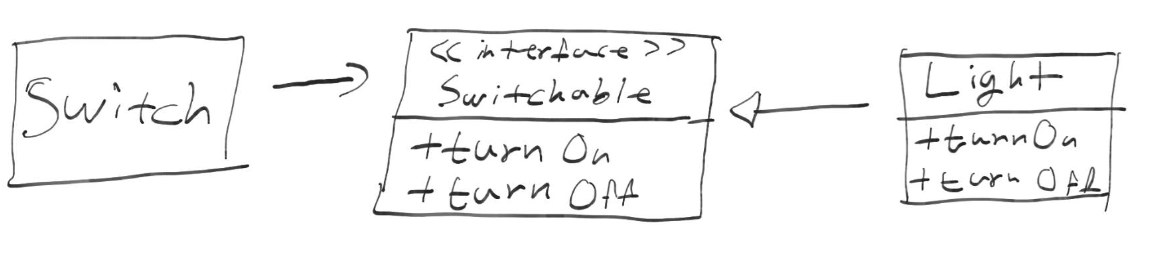 Switch
<<interface>>
Switchable
+turn On
+turn Off
Light
+turnOn
+turn Off